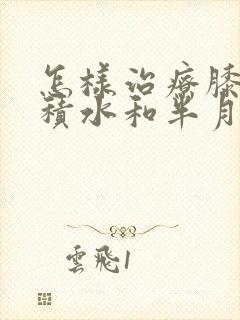 怎樣治療膝
積水和半月
雲飛1